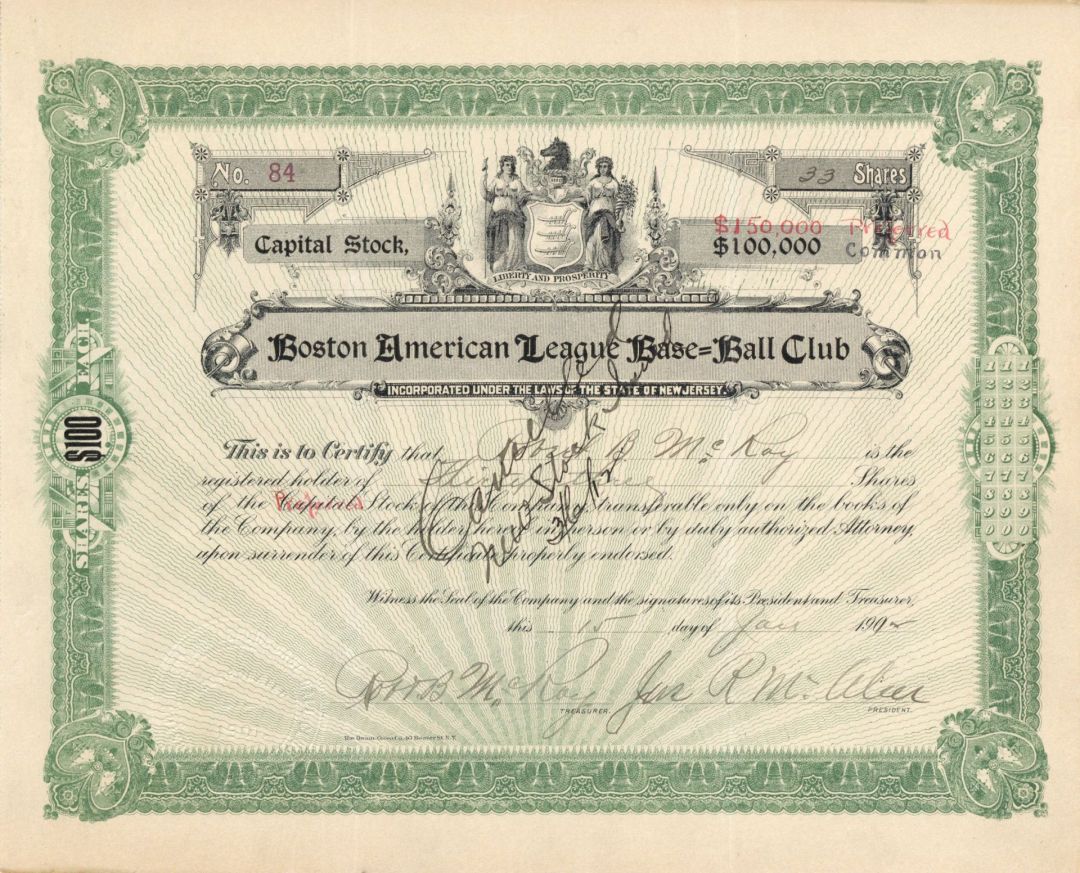 No. 84
33 Shares
$150,000 Preferred
Capital Stock,
$100,000 Common
LIBERTY AND PROSPERITY
Boston American League Base=Ball Club
INCORPORATED UNDER THE LAWS OF THE STATE OF NEW JERSEY.
This is to Certify that Robt B McRoy is the
registered holder of Thirty three Shares
of the Capital Preferred Stock of the Company, transferable only on the books of
the Company, by the holder hereof in person or by duly authorized Attorney,
upon surrender of this Certificate properly endorsed.
Cancelled
New Stock Issued
Witness the Seal of the Company and the signatures of its President and Treasurer,
this 15 day of Jan 1902
Robt B McRoy
TREASURER.
Jas R McAleer
PRESIDENT.
SHARES $100 EACH
1 1 1 1
2 2 2 2
3 3 3 3
4 4 4 4
5 5 5 5
6 6 6 6
7 7 7 7
8 8 8 8
9 9 9 9
0 0 0 0